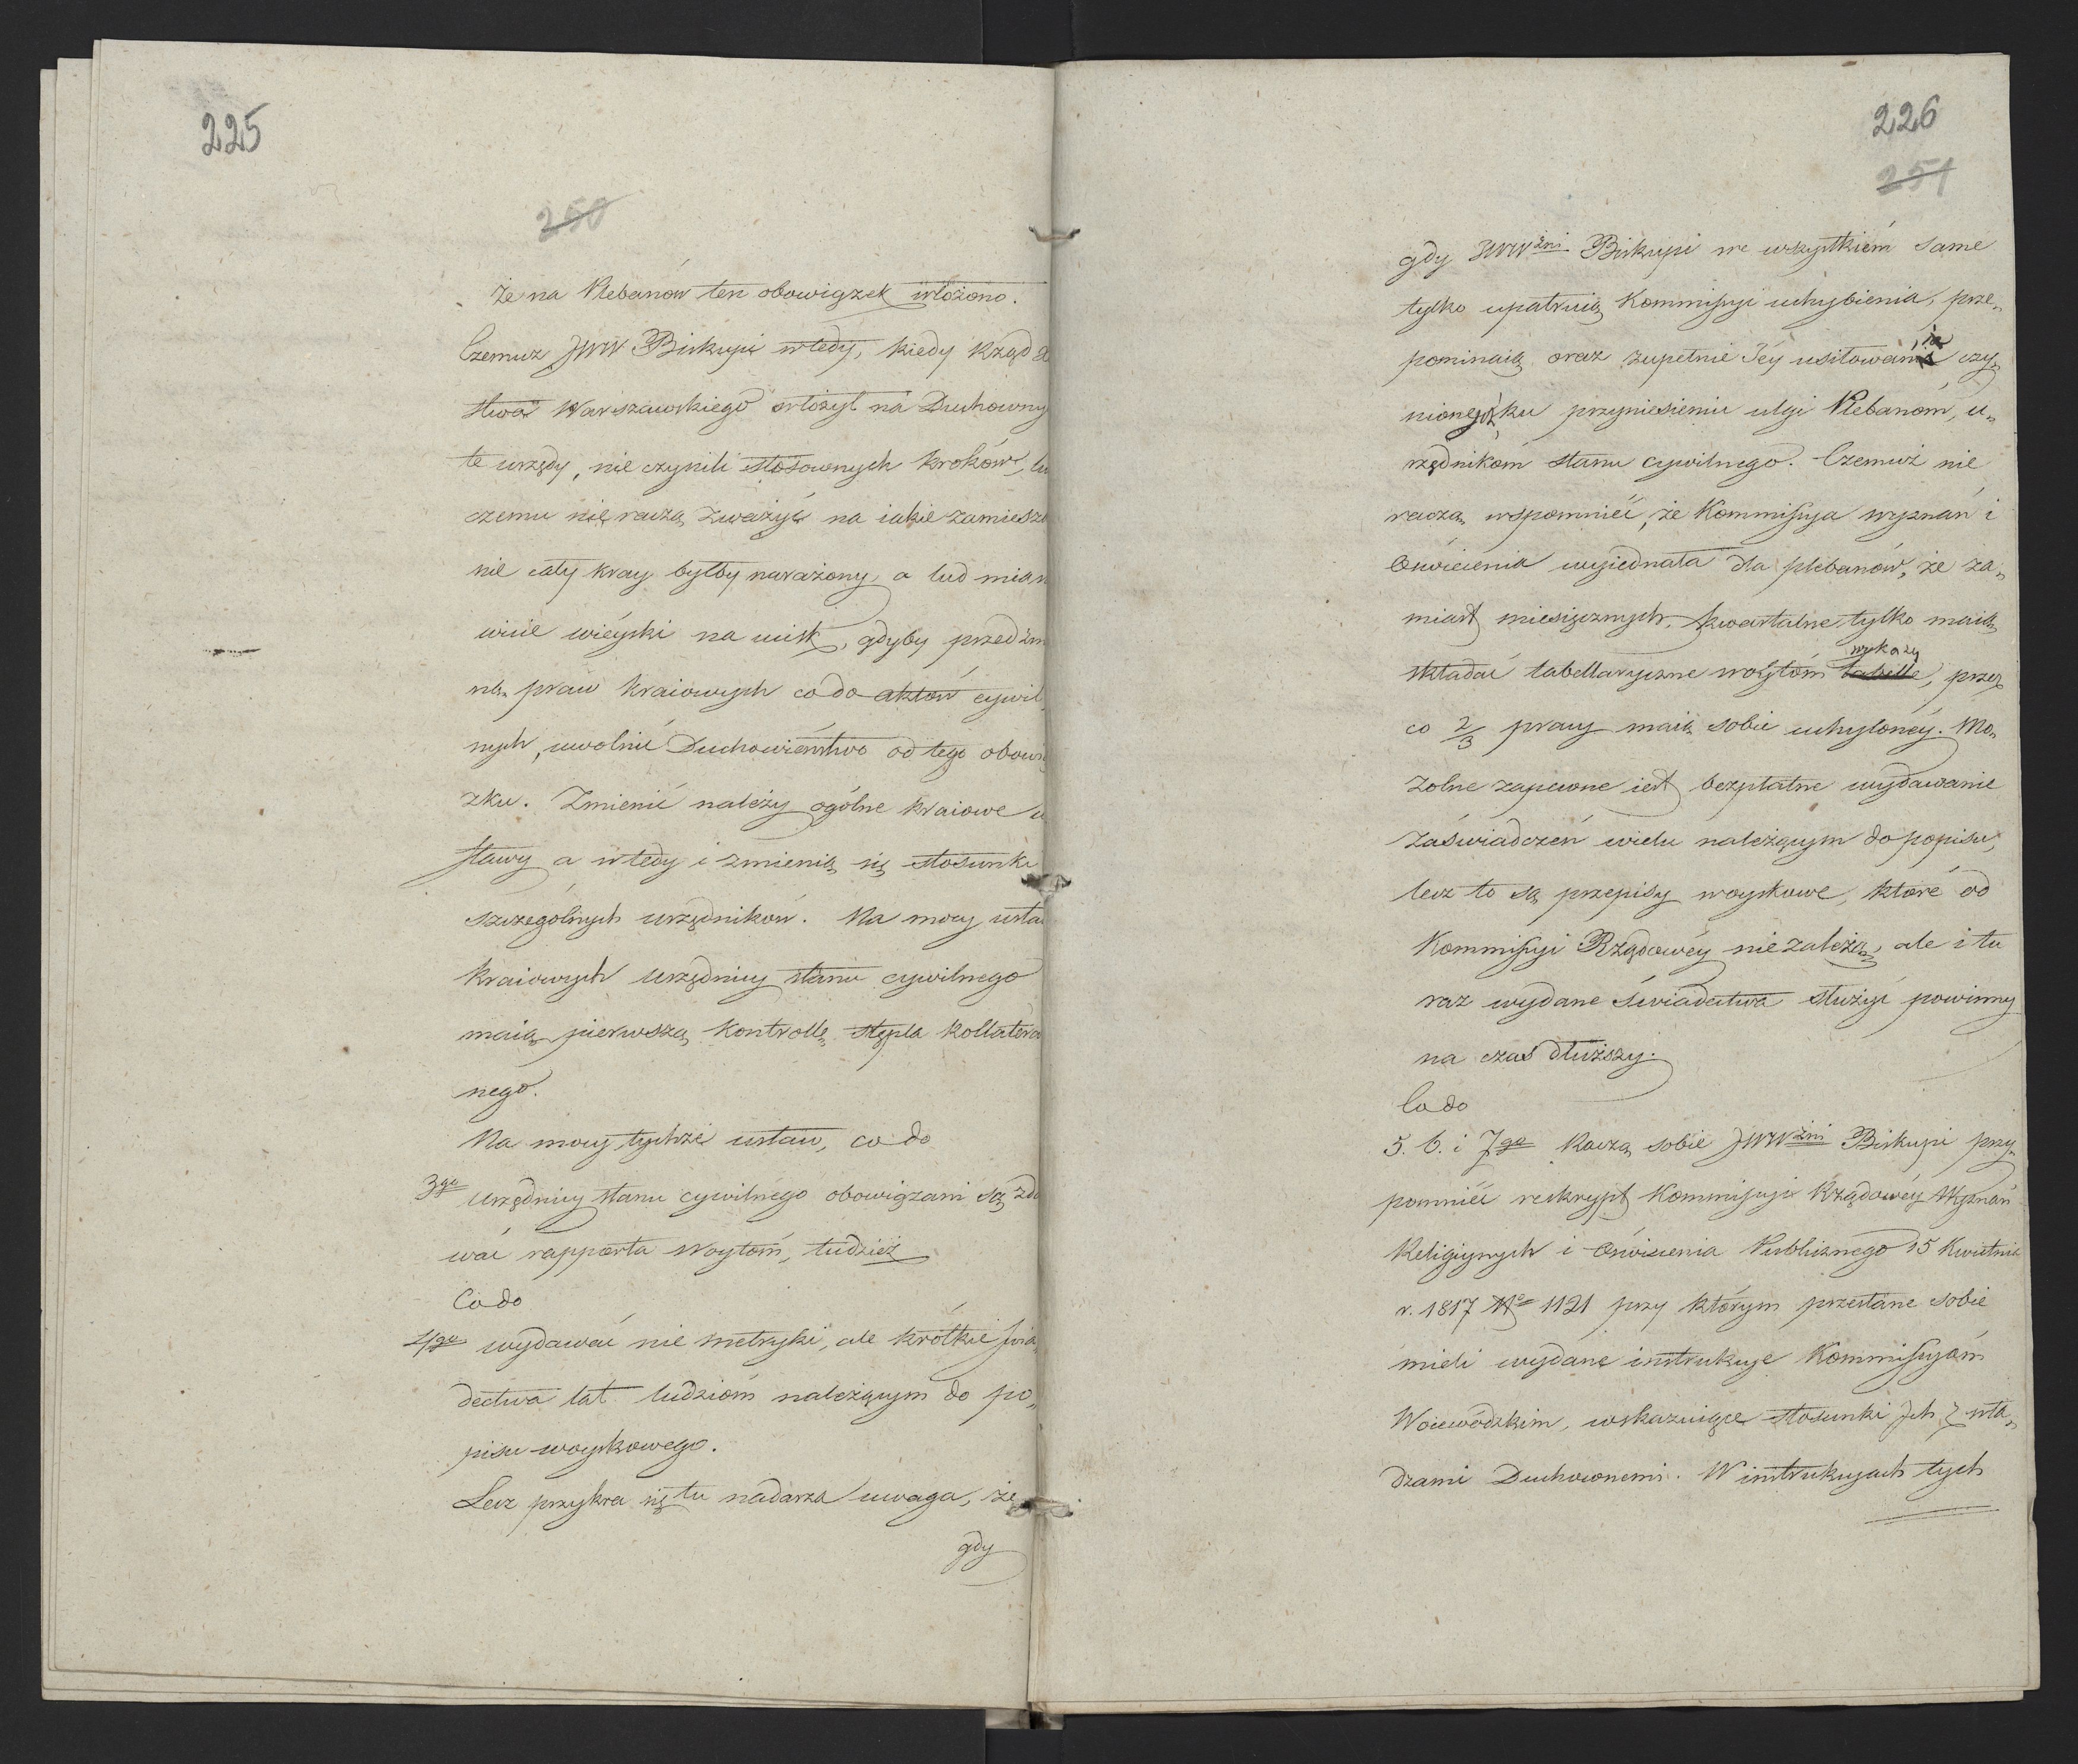 225
250
że na Plebanów ten obowiązek włożono.
Czemuż JWW Biskupi wtedy, kiedy Rząd X
stwa Warszawskiego włożył na Duchowny
te urzędy, nie czynili stosownych kroków, lu
czemu nie raczą zważyć na iakie zamiesza
nie cały kray byłby narażony, a lud miano
wicie wieyski na ucisk, gdyby przed zm
ną praw kraiowych co do aktów cywil
nych, uwolnić Duchowieństwo od tego obowi
zku. Zmienić należy ogólne kraiowe u
stawy a wtedy i zmienią się stosunki
szczególnych urzędników. Na mocy usta
kraiowych urzędnicy stanu cywilnego
maią pierwszą kontrollę stępla kollatera
nego.
Na mocy tychże ustaw, co do
3go Urzędnicy stanu cywilnego obowiązani są zda
wać rapporta Woytóm, tudzież
Co do
4go wydawać nie metryki, ale krótkie świa
dectwa lat ludzióm należącym do po„
pisu woyskowego.
Lecz przykra się tu nadarza uwaga, że
gdy
226
251
gdy JWWżni Biskupi we wszystkiém same
tylko upatruią Kommissyi uchybienia, prze„
pominaią oraz zupełnie Jéy usiłowania czy„
nionego ku przyniesieniu ulgi Plebanóm, u„
rzędnikóm stanu cywilnego. Czemuż nie
raczą wspomnieć, że Kommissya wyznań i
Oświecenia wyiednała dla plebanów, że za„
miast miesięcznych, kwartalne tylko maią
wykazy
składać tabellaryczne woytóm tabelle, przez
co 2/3 pracy maią sobie uchyloney. Mo„
zolne zapewne iest bezpłatne wydawanie
zaświadczeń wielu należącym do popisu,
lecz to są przepisy woyskowe, które od
Kommissyi Rządowéy nie zależą, ale i tu
raz wydane świadectwa służyć powinny
na czas dłuższy.
Co do
5. 6. i 7go Raczą sobie JWWżni Biskupi przy„
pomnieć reskrypt Kommissyi Rządowéy Wyznań
Religiynych i Oświecenia Publicznego 15 Kwietnia
r. 1817 No 1121 przy którym przesłane sobie
mieli wydane instrukcye Kommissyóm
Woiewódzkim, wskazuiące stosunki Ich z wła„
dzami Duchownemi. W instrukcyach tych